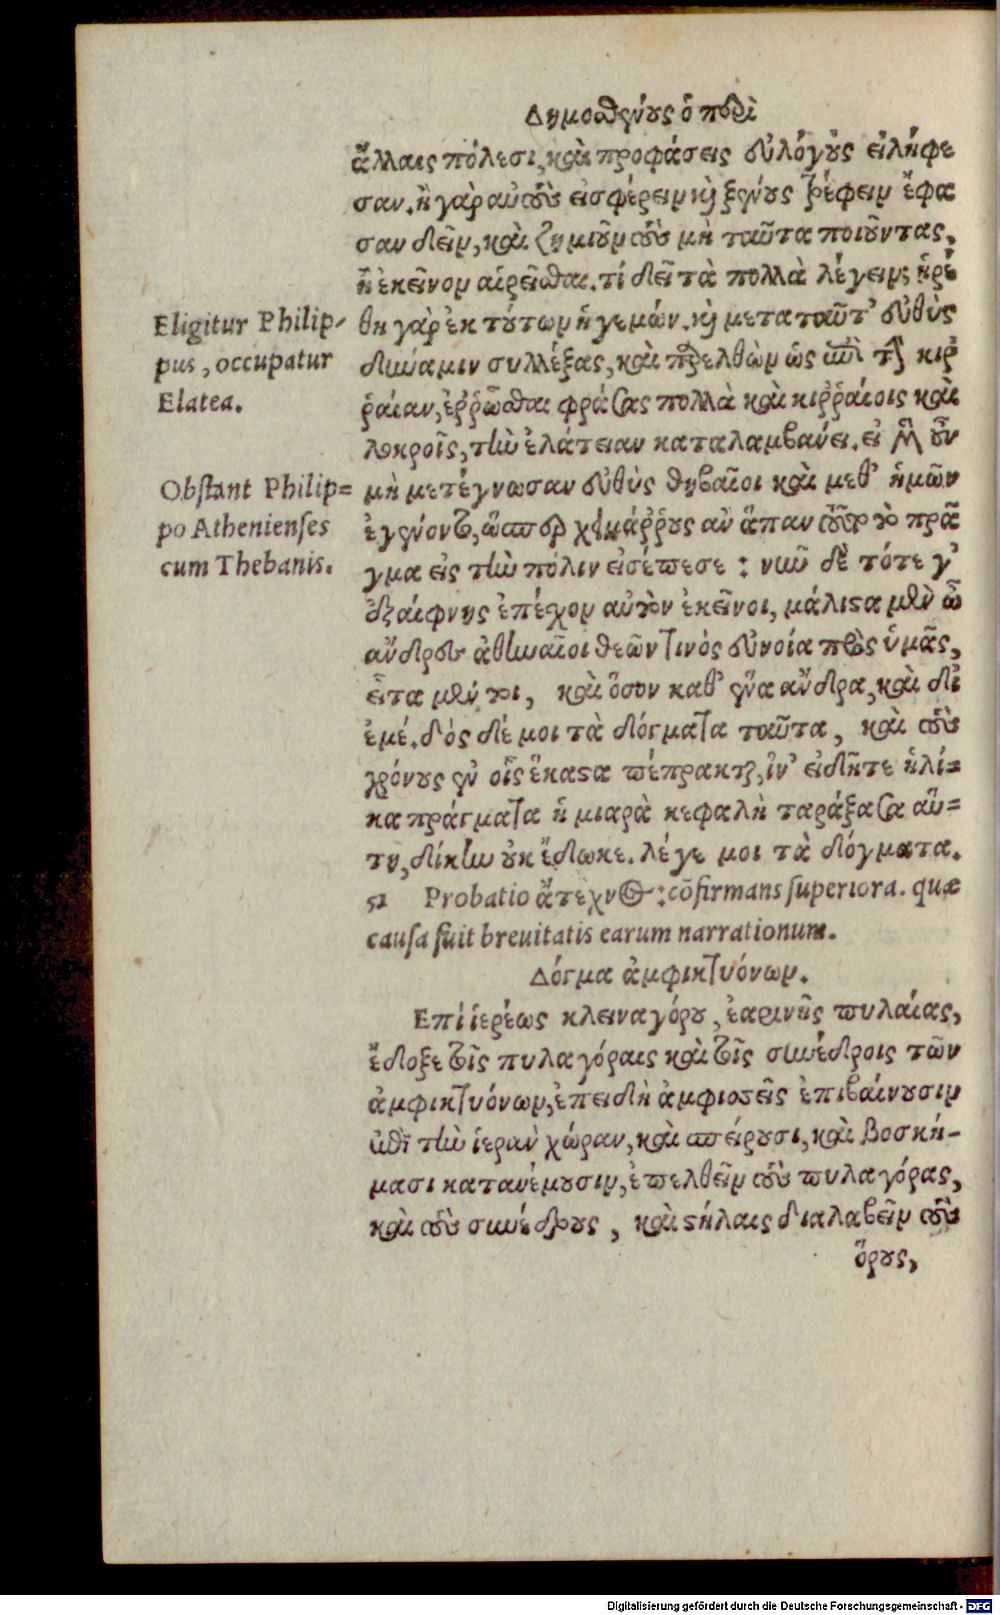 Δημοσθένους ὁ περὶ
ἄλλαις πόλεσι, καὶ προφάσεις εὐλόγους εἰλήφε
σαν. ἢ γὰρ αὐτοὺς εἰσφέρειν καὶ ξένους τρέφειν ἔφα
σαν δεῖν, καὶ ζημιοῦν τοὺς μὴ ταῦτα ποιοῦντας,
ἢ ἐκεῖνον αἱρεῖσθαι. τί δεῖ τὰ πολλὰ λέγειν; ἡρέ
θη γὰρ ἐκ τούτων ἡγεμών. καὶ μετα ταῦτ' εὐθὺς
δύναμιν συλλέξας, καὶ παρελθὼν ὡς ἐπὶ τὴν κιῤ
ῥαίαν, ἐῤῥῶσθαι φράσας πολλὰ καὶ κιῤῥαίοις καὶ
λοκροῖς, τὴν ἐλάτειαν καταλαμβάνει. εἰ μὲν οὖν
μὴ μετέγνωσαν εὐθὺς θηβαῖοι καὶ μεθ' ἡμῶν
ἐγένοντο, ὥσπερ χειμάῤῥους ἂν ἅπαν τοῦτο τὸ πρᾶ
γμα εἰς τὴν πόλιν εἰσέπεσε : νῦν δὲ τότε γ'
ἐξαίφνης ἐπέχον αὐτὸν ἐκεῖνοι, μάλιστα μὲν ὦ
ἄνδρες ἀθηναῖοι θεῶν τινὸς εὐνοία πρὸς ὑμᾶς,
εἶτα μέντοι, καὶ ὅσον καθ' ἕνα ἄνδρα, καὶ δι'
ἐμέ. δὸς δέ μοι τὰ δόγματα ταῦτα, καὶ τοὺς
χρόνους ἐν οἷς ἕκαστα πέπρακται, ἵν' εἰδῆτε ἡλί=
κα πράγματα ἡ μιαρὰ κεφαλὴ ταράξασα αὕ=
τη, δίκην οὐκ ἔδωκε. λέγε μοι τὰ δόγματα.
51 Probatio ἄτεχνος : cōfirmans superiora. quæ
causa fuit breuitatis earum narrationum.
Δόγμα ἀμφικτυόνων.
Επὶ ἱερέως κλειναγόρου, ἐαρινῆς πυλαίας,
ἔδοξε τοῖς πυλαγόραις καὶ τοῖς συνέδροις τῶν
ἀμφικτυόνων, ἐπειδὴ ἀμφισεῖς ἐπιβαίνουσιν
ἐπὶ τὴν ἱερὰν χώραν, καὶ σπείρουσι, καὶ βοσκή-
μασι κατανέμουσιν, ἐπελθεῖν τοὺς πυλαγόρας,
καὶ τοὺς συνέδρους, καὶ στήλαις διαλαβεῖν τοὺς
ὅρους,
Eligitur Philip-
pus, occupatur
Elatea.
Obstant Philip=
po Athenienses
cum Thebanis.
Digitalisierung gefördert durch die Deutsche Forschungsgemeinschaft - DFG